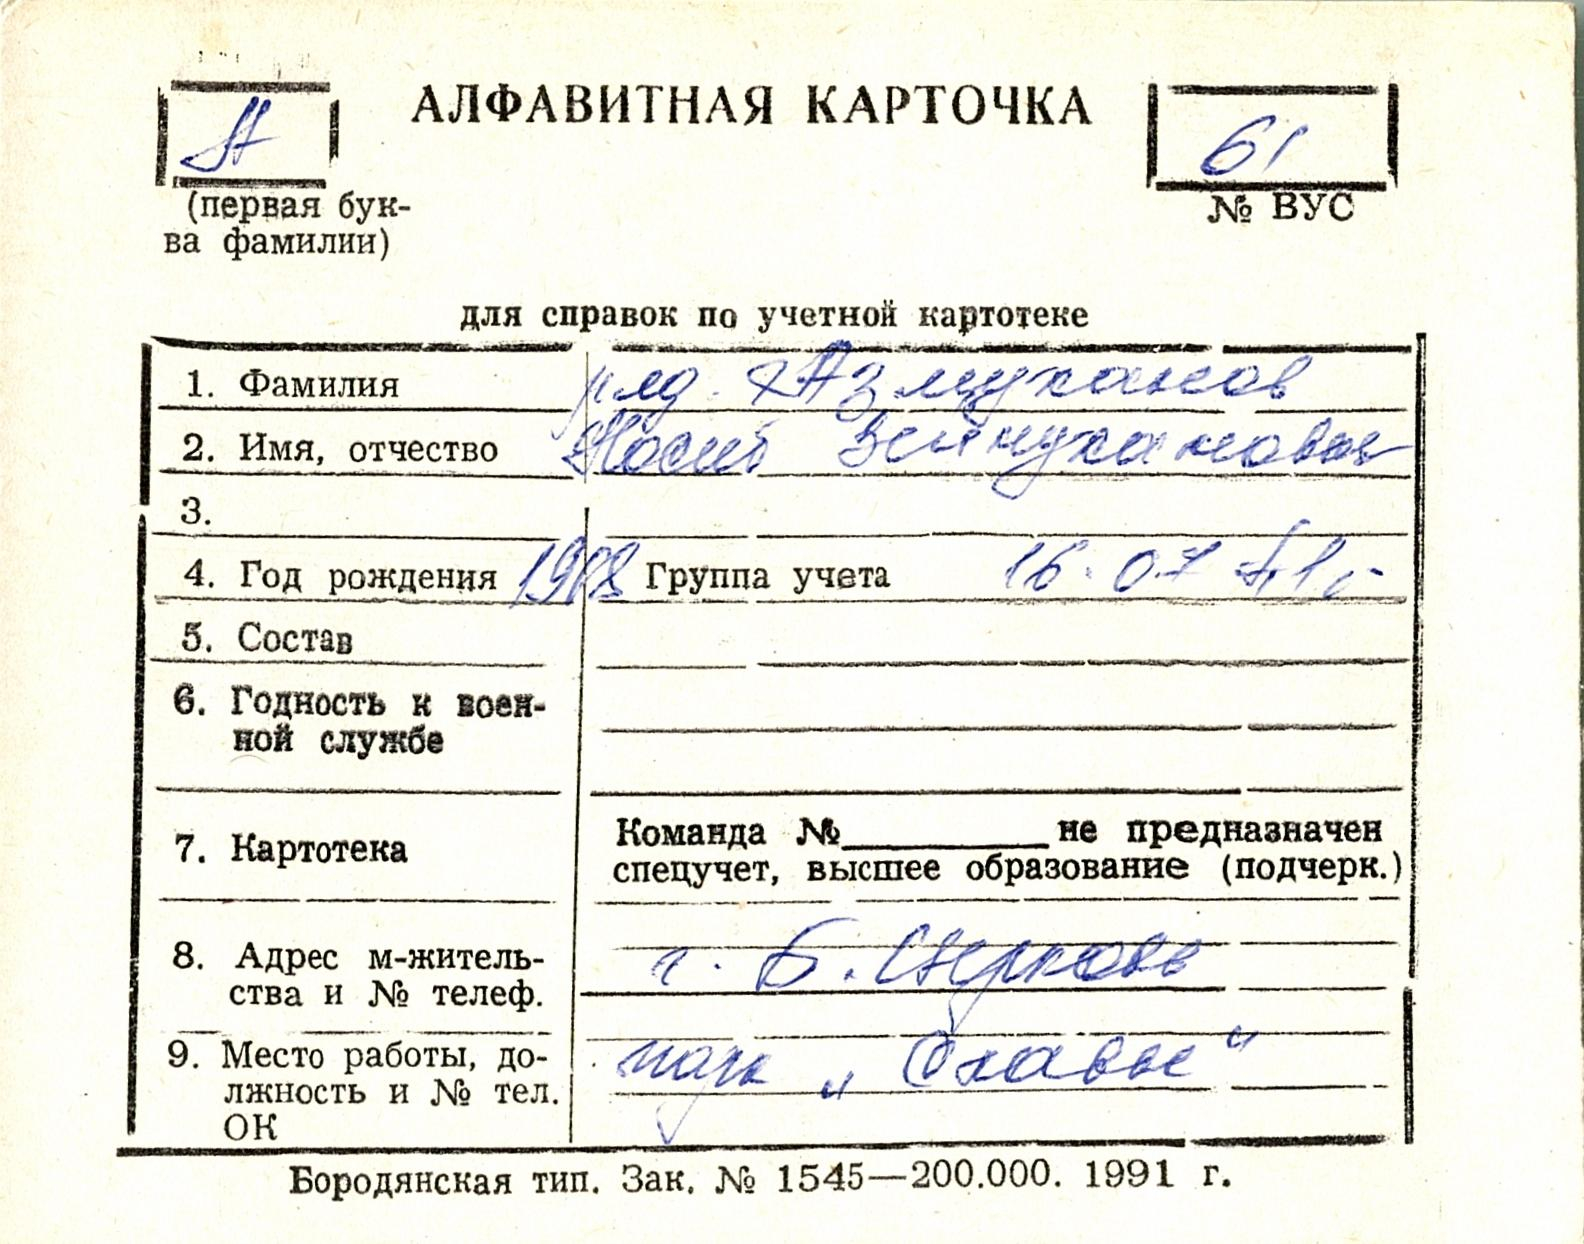 А
АЛФАВИТНАЯ КАРТОЧКА
61
(первая бук-
ва фамилии)
№ ВУС
для справок по учетной картотеке
1. Фамилия мл. Азмуханов
2. Имя, отчество Зейнуханович
3.
4. Год рождения 1918 Группа учета 16.07.41 г.
5. Состав
6. Годность к воен-
ной службе
7. Картотека
Команда №__________не предназначен
спецучет, высшее образование (подчерк.)
8. Адрес м-житель-
ства и № телеф.
г. Б. Церковь
9. Место работы, до-
лжность и № тел.
ОК
парк „Славы"
Бородянская тип. Зак. № 1545—200.000. 1991 г.